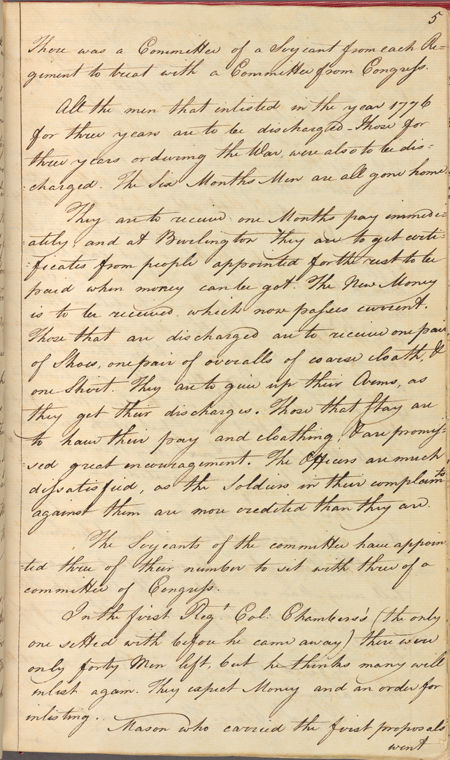 5
There was a Committee of a Serjeant from each Re=
giment to treat with a Committee from Congress.
All the men that inlisted in the year 1776
for three years are to be discharged. Those for
three years or during the War, were also to be dis=
charged. The Six Months Men are all gone home.
They are to receive one Months pay immedi=
ately and at Burlington they are to get certi=
ficates from people appointed for the rest to be
paid when money can be got. The New Money
is to be received which now passes current.
Those that are discharged are to receive one pair
of Shoes, one pair of overalls of coarse cloath, &
one Shirt. They are to give up their Arms, as
they get their discharges. Those that stay are
to have their pay and cloathing, & are promi=
sed great encouragement. The Officers are much
dissatisfied, as the Soldiers in their complaints
against them are more credited than they are.
The Serjeants of the committee have appoin
ted three of their number to sit with three of a
committee of Congress.
In the first Regt. Col: Chambers's (the only
one settled with before he came away) there were
only forty Men left, but he thinks many will
inlist again. They expect Money and an order for
inlisting.
Mason who carried the first proposals
went